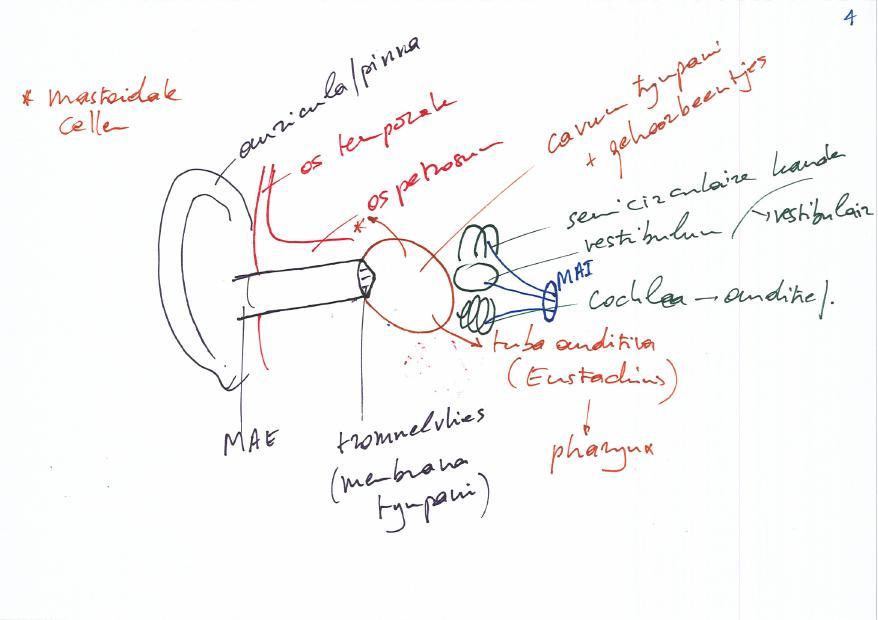 4
* mastoidale
cellen
auricula/pinna
os temporale
os petrosum
*
cavum tympani
+ gehoorbeentjes
semicirculaire kanalen
vestibulum
→ vestibulair
MAI
cochlea → auditief.
tuba auditiva
(Eustachius)
pharynx
MAE
trommelvlies
(membrana
tympani)